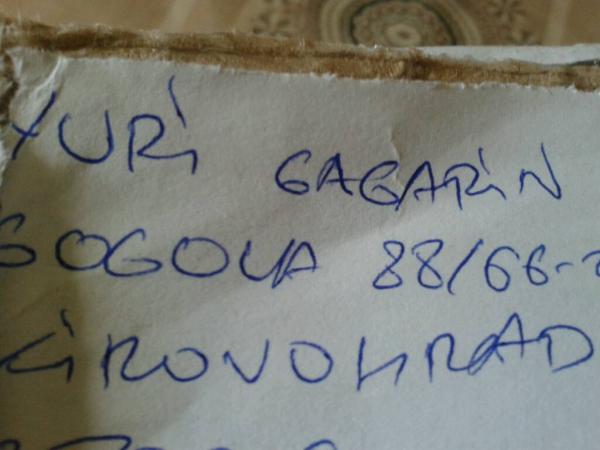 YURi GAGARiN
GOGOLA 88/66-
KiROVOHRAD